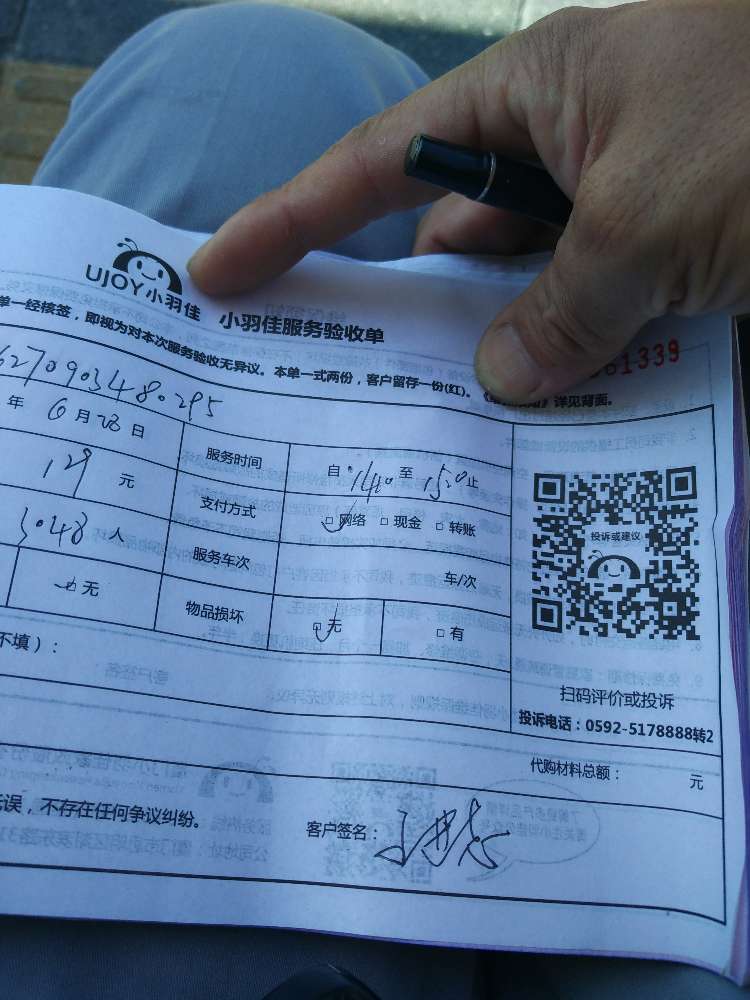 UJOY小羽佳
小羽佳服务验收单
单一经核签，即视为对本次服务验收无异议。本单一式两份，客户留存一份(红)。
详见背面。
61339
6270903480295
年 6 月 28 日
服务时间 自 1420 至 1520 止
129 元
支付方式 网络 现金 转账
3048 人
服务车次 车/次
无
物品损坏 无 有
投诉或建议
扫码评价或投诉
投诉电话：0592-5178888转2
不填）：
代购材料总额： 元
无误，不存在任何争议纠纷。
客户签名：